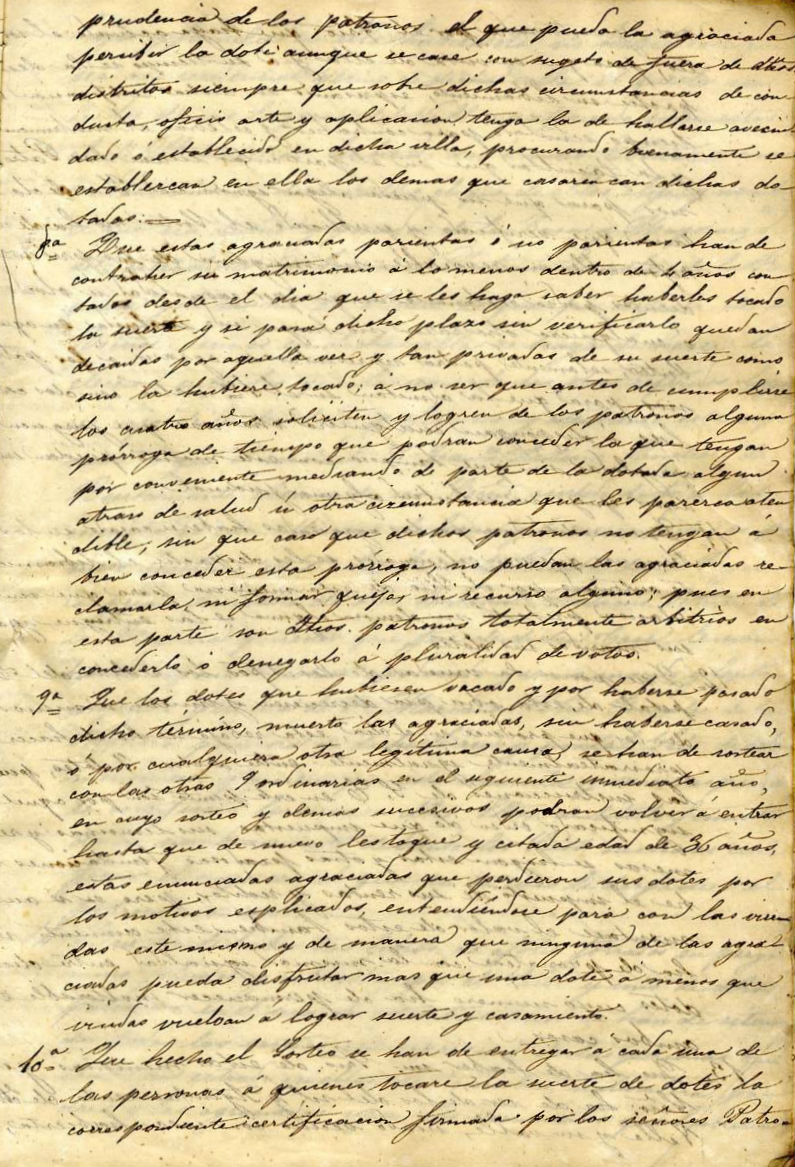 prudencia de los patronos el que pueda la agraciada
percibir la dote aunque se case con sugeto de fuera de dhos
distritos siempre que sobre dichas circunstancias de con
ducta, oficio arte y aplicacion tenga la de hallarse avecin
dado ó establecido en dicha villa, procurando buenamente se
establezcan en ella los demas que casaren con dichas do-
tadas.
8ª Que estas agraciadas parientas ó no parientas han de
contraher su matrimonio á lo menos dentro de 4 años con
tados desde el dia que se les haga saber haberles tocado
la suerte y si pasa dicho plazo sin verificarlo quedan
decaidas por aquella vez y tan privadas de su suerte como
sino la hubiere tocado; á no ser que antes de cumplirse
los cuatro años soliciten y logren de los patronos alguna
prórroga de tiempo que podran conceder la que tengan
por conveniente mediando de parte de la dotada algun
atraso de salud ú otra circunstancia que les parezca aten
dible; sin que caso que dichos patronos no tengan á
bien conceder esta prórroga, no puedan las agraciadas re-
clamarla, ni formar queja, ni recurso alguno; pues en
esta parte son dhos. patronos totalmente arbitrios en
concederlo ó denegarlo á pluralidad de votos.
9ª Que los dotes que hubiesen vacado y por haberse pasado
dicho término, muerto las agraciadas, sin haberse casado,
ó por cualquiera otra legitima causa, se han de sortear
con las otras 9 ordinarias en el siguiente inmediato año,
en cuyo sorteo y demas sucesivos podran volver á entrar
hasta que de nuevo les toque y citada edad de 36 años,
estas enunciadas agraciadas que perdieron sus dotes por
los motivos esplicados, entendiéndose para con las viu
das este mismo y de manera que ninguna de las agra-
ciadas pueda disfrutar mas que una dote á menos que
viudas vuelvan á lograr suerte y casamiento.
10ª Que hecho el Sorteo se han de entregar á cada una de
las personas á quienes tocare la suerte de dotes la
correspondiente certificacion firmada por los señores Patro-